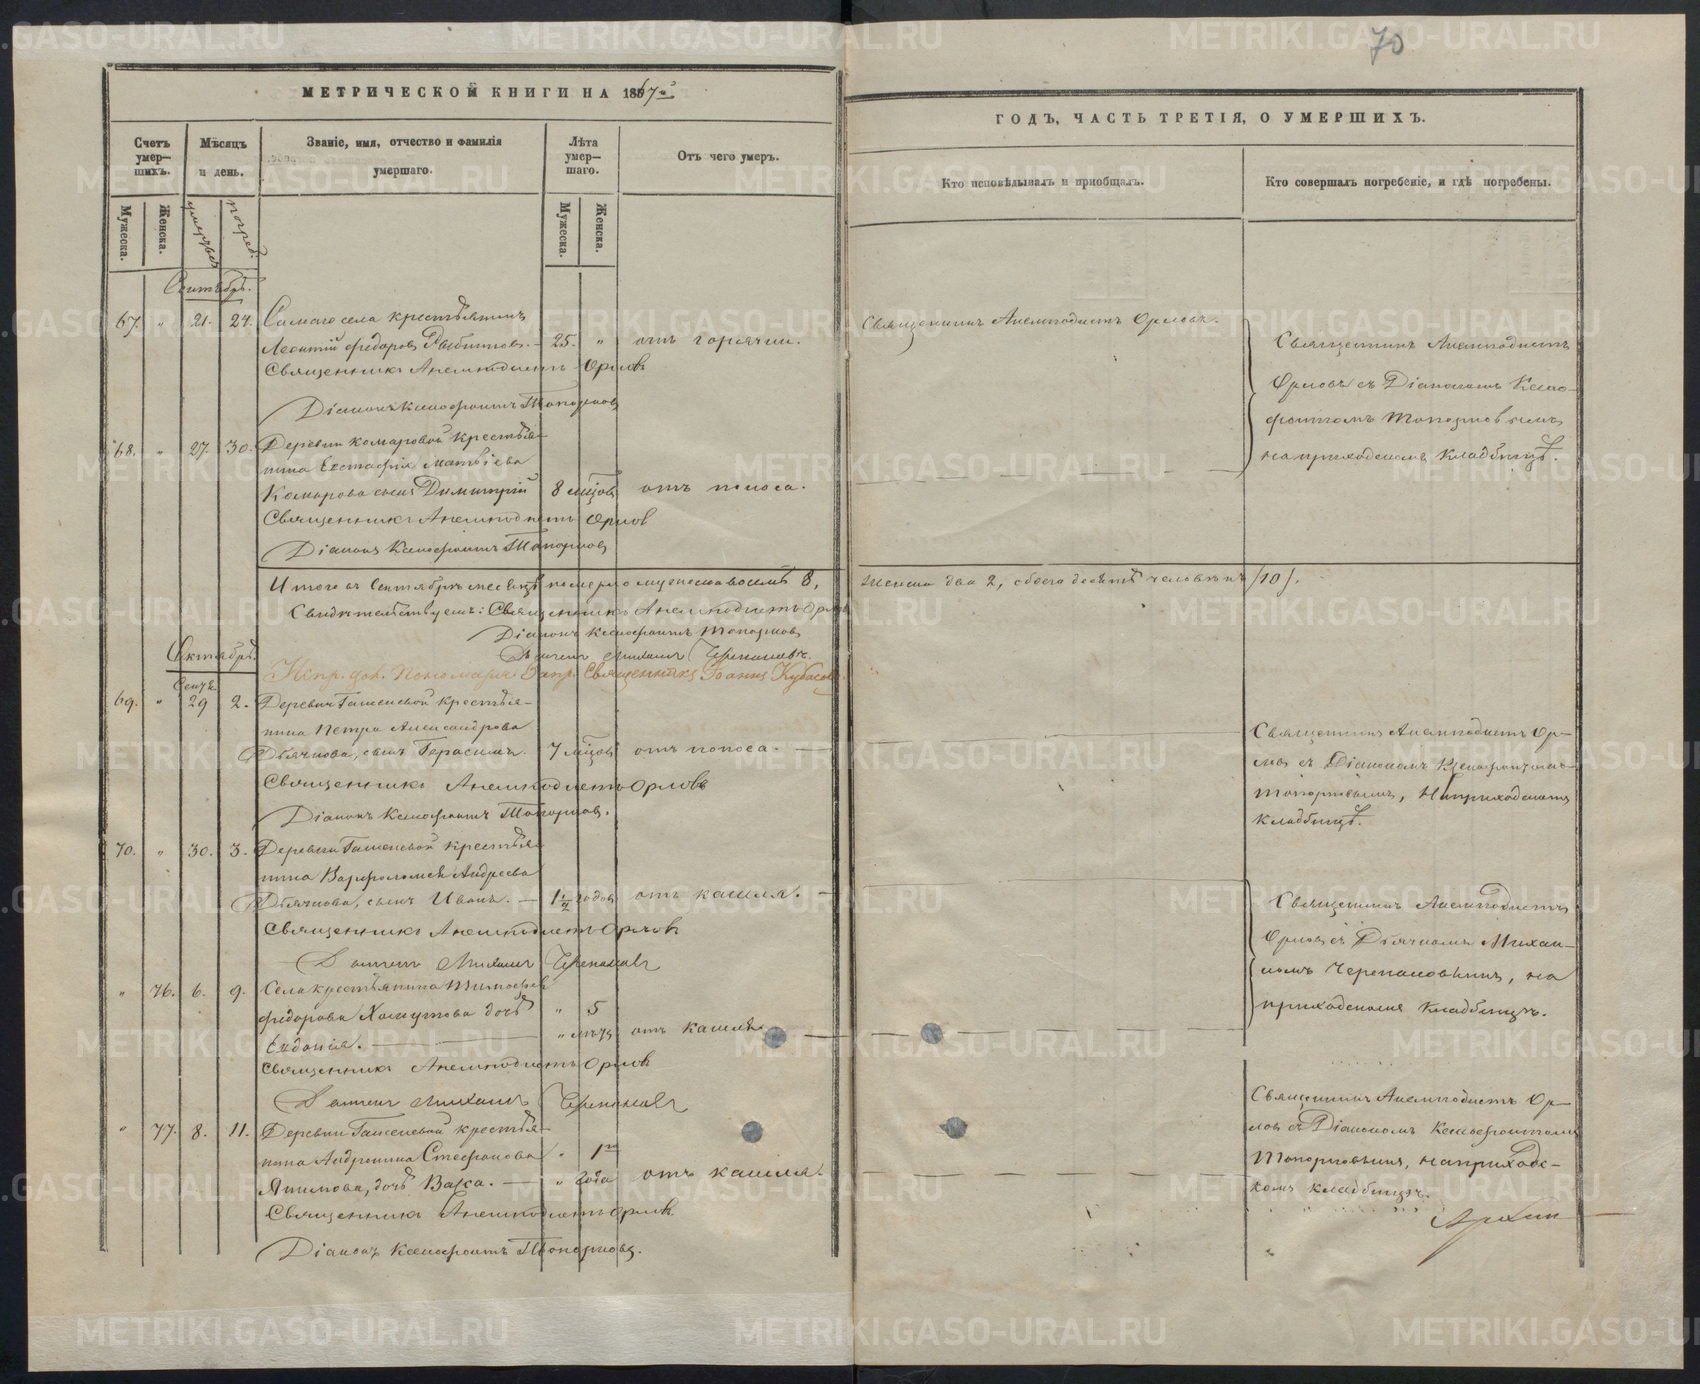 70
МЕТРИЧЕСКОЙ КНИГИ НА 1867й
ГОДЪ, ЧАСТЬ ТРЕТІЯ, О УМЕРШИХЪ.
Счетъ умер—шихъ.
Мѣсяцъ и день.
Званіе, имя, отчество и фамилія умершаго.
Лѣта умер—шаго.
Отъ чего умеръ.
Кто исповѣдывалъ и пріобщалъ.
Кто совершалъ погребеніе, и гдѣ погребены.
Мужеска.
Женска.
погреб.
Мужеска.
Женска.
Сентябрь.
67. " 21. 24. Самаго села крестьянинъ
Леонтій Федоровъ — 25. " отъ горячки.
Священникъ Анемподистъ Орловъ
Діаконъ Ксенофонтъ Топорковъ
Священникъ Анемподистъ Орловъ.
Священникъ Анемподистъ
Орловъ съ Діакономъ Ксено-
фонтомъ Топорковымъ
на приходскомъ кладбищѣ.
68. " 27. 30. Деревни Комаровой крестья-
нина Евстафія Матвѣева
Комарова сынъ Димитрій 8 мѣсяц. отъ поноса.
Священникъ Анемподистъ Орловъ
Діаконъ Ксенофонтъ Топорковъ
Итого въ Сентябрѣ месяцѣ померло мужеска восемь 8,
женска два 2, обоего десять человѣкъ /10/.
Свидѣтельствуемъ: Священникъ Анемподистъ Орловъ
Діаконъ Ксенофонтъ Топорковъ
Дьячекъ Михаилъ Черепановъ.
Испр. дол. Пономаря Запр. Священникъ Іоаннъ Кубасовъ.
Октябрь.
Сент.
69. " 29 2. Деревни Гашеневой крестья-
нина Петра Александрова
Дьячкова, сынъ Герасимъ. 7 мѣсяц. отъ поноса. —
Священникъ Анемподистъ Орловъ
Діаконъ Ксенофонтъ Топорковъ.
Священникъ Анемподистъ Ор-
ловъ съ Діакономъ Ксенофонтомъ
Топорковымъ, на приходскомъ
кладбищѣ.
70. " 30. 3. Деревни Гашеневой крестья-
нина Варфоломея Андреева
Дьячкова, сынъ Иванъ. — 1½ годов отъ кашля. —
Священникъ Анемподистъ Орловъ
Дьячекъ Михаилъ Черепановъ
Священникъ Анемподистъ
Орловъ съ Дьячкомъ Михаи-
ломъ Черепановымъ, на
приходскомъ кладбищѣ.
" 76. 6. 9. Села крестьянина Тимофея
Федорова дочь " 5
" мѣся отъ кашля
Священникъ Анемподистъ Орловъ
Дьячекъ Михаилъ Черепановъ
" 77. 8. 11. Деревни Гашеневой крестья-
нина Андроника Стефанова " 1го
Якимова, дочь Васса. — " года отъ кашля.
Священникъ Анемподистъ Орловъ.
Діаконъ Ксенофонтъ Топорковъ.
Священникъ Анемподистъ Ор-
ловъ съ Діакономъ Ксенофонтомъ
Топорковымъ, на приходс-
комъ кладбищѣ.
METRIKI.GASO-URAL.RU